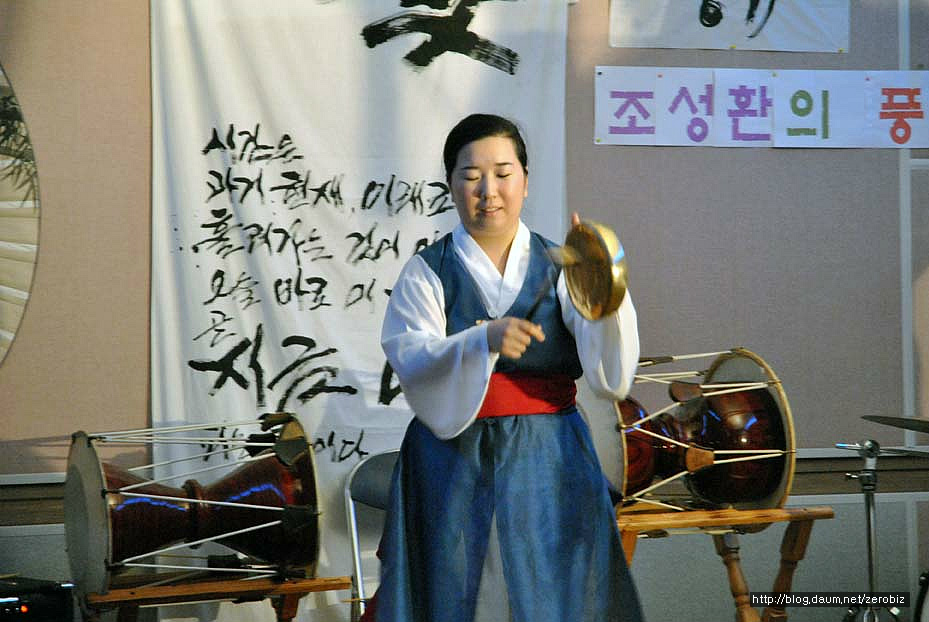 조성환의 풍
시간은
과거 현재, 미래로
흘러가는 것이
오늘 바로 이
곧
지금
이다
http://blog.daum.net/zerobiz